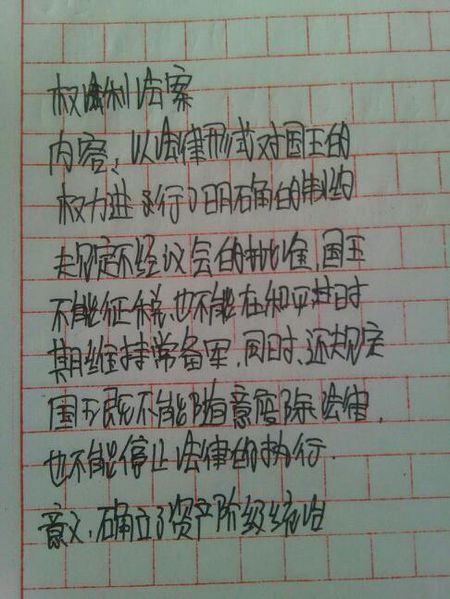 权利法案
内容、以法律形式对国王的
权力进行了明确的制约
规定不经议会的批准，国王
不能征税，也不能在和平时
期维持常备军，同时、还规定
国王既不能随意废除法律，
也不能停止法律的执行．
意义、确立了资产阶级统治